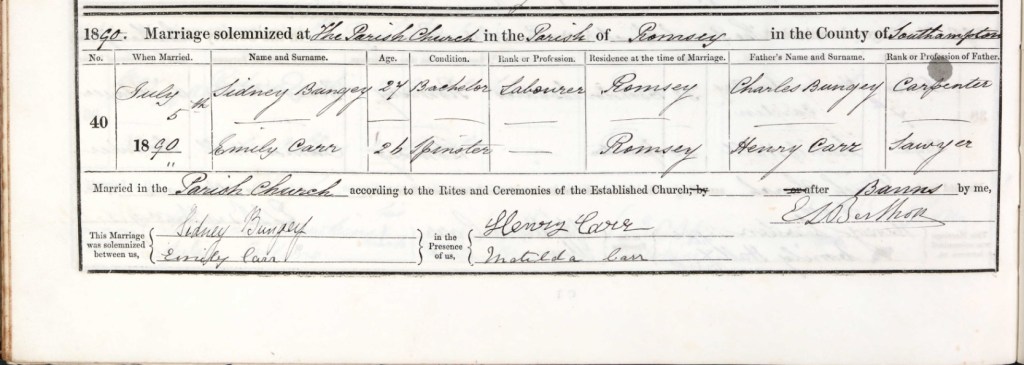 1890. Marriage solemnized at The Parish Church in the Parish of Romsey in the County of Southampton
No. When Married. Name and Surname. Age. Condition. Rank or Profession. Residence at the time of Marriage. Father's Name and Surname. Rank or Profession of Father.
July Sidney Bungey 27 Bachelor Labourer Romsey Charles Bungey Carpenter
5th
40
1890 Emily Carr 26 Spinster Romsey Henry Carr Sawyer
Married in the Parish Church according to the Rites and Ceremonies of the Established Church, by or after Banns by me,
E L Berthon
This Marriage was solemnized between us,
Sidney Bungey
Emily Carr
in the Presence of us,
Henry Carr
Matilda Carr